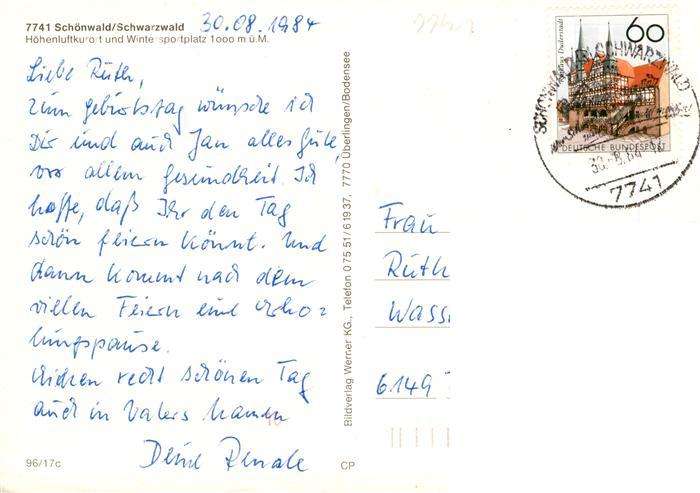 7741 Schönwald/Schwarzwald
Höhenluftkurort und Wintersportplatz 1000 m ü.M.
30.08.1984
Liebe Ruth,
zum Geburtstag wünsche ich
Dir und auch Jan alles Gute,
vor allem Gesundheit. Ich
hoffe, daß Ihr den Tag
schön feiern könnt. Und
dann kommt nach dem
vielen Feiern eine Erho=
lungspause.
recht schönen Tag
auch in Vaters Namen
Deine Renate
96/17c
CP
Bildverlag Werner KG., Telefon 07551/61937, 7770 Überlingen/Bodensee
60
DEUTSCHE BUNDESPOST
7741
Frau
Ruth
Wass
6149